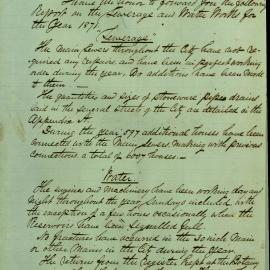 I have the honor to forward you the following
Report on the Sewerage and Water Works for
the Year 1871.
"Sewerage"
The Main Sewers throughout the City have not re-
quired any repairs and have been in perfect working
order during the year. No additions have been made
to them.
The quantities and sizes of stoneware pipes drains
laid in the several streets of the City are detailed in the
Appendix A.
During the year 597 additional houses have been
connected with the Main Sewers making with previous
connections a total of houses.
"Water"
The engines and machinery have been working day and
night throughout the year, Sundays included, with
the exception of a few hours occasionally when the
Reservoirs have been full.
No fractures have occurred in the 30 inch Main
or other Mains in the City during the year.
The Returns from the Register Kept at the Botany